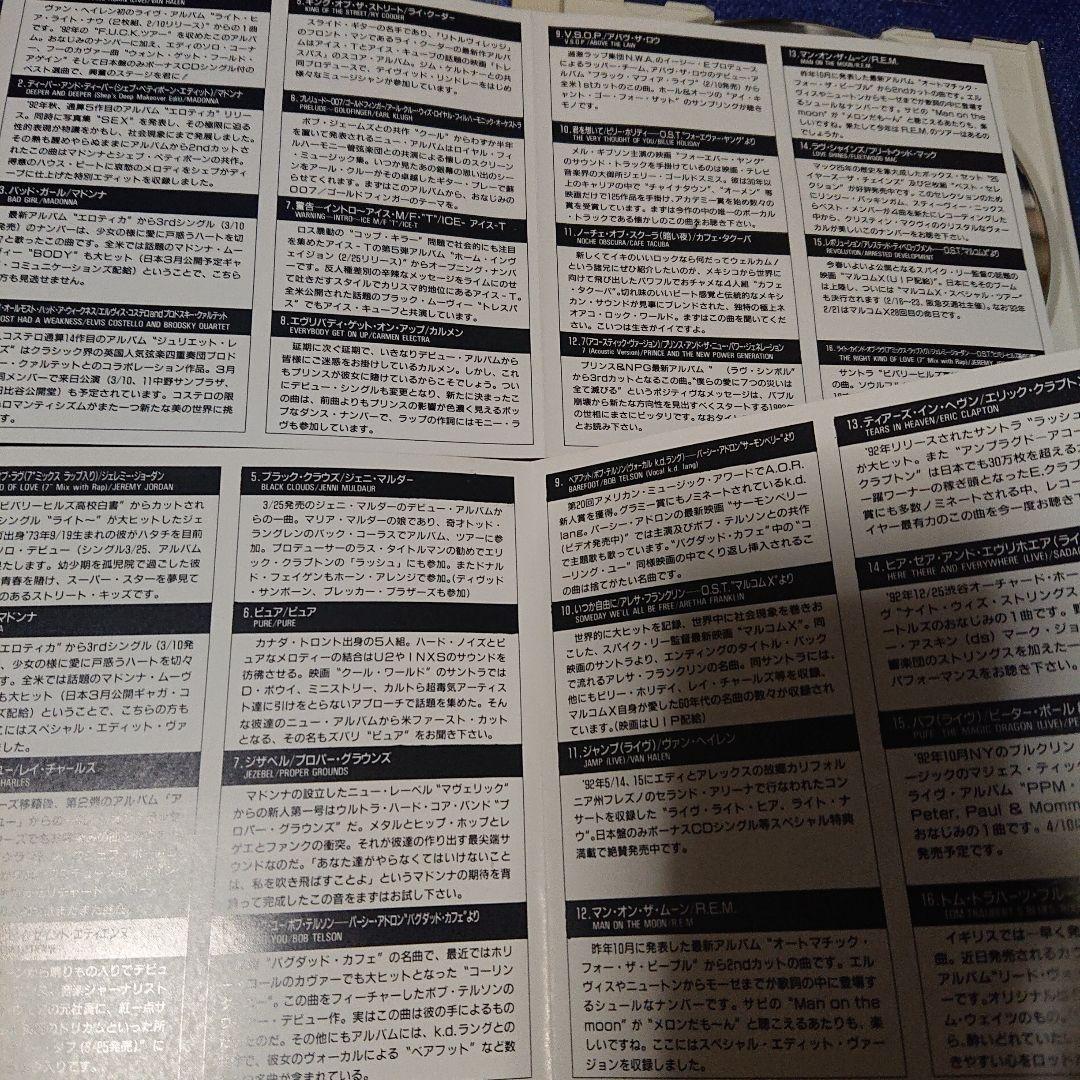 ヴァン・ヘイレン初のライヴ・アルバム"ライト・ヒ
ア、ライト・ナウ(2枚組、2/10リリース)"からの1曲
です。'92年の"F.U.C.K.ツアー"を収めたこのアル
バム。おなじみのナンバーに加え、エディのソロ・コーナ
ベスト選曲で、興奮のステージを君に!
2.ディーパー・アンド・ディーパー(シェプ・ペティボーン・エディット)/マドンナ
DEEPER AND DEEPER (Shep's Deep Makeover Edit)/MADONNA
'92年秋、通算5作目のアルバム"エロティカ"リリー
ス。同時に写真集"SEX"を発表し、その極限に迫る
性的表現が物議をかもし、社会現象にまで発展しました。
その熱も醒めやらぬままにアルバムから2ndカットさ
れたこの曲はマドンナとシェプ・ペティボーンの共作。
得意のハウス・ビートに哀愁のメロディをシェプがディ
ープに仕上げた特別エディットを収録しました。
3.バッド・ガール/マドンナ
BAD GIRL/MADONNA
最新アルバム"エロティカ"から3rdシングル(3/10
発売)のナンバーは、少女の様に愛に戸惑うハートを切
々と歌ったこの曲です。全米では話題のマドンナ・ムー
ヴィー"BODY"も大ヒット(日本3月公開予定ギャ
ガ・コミュニケーションズ配給)ということで、こちら
の方も見逃せません。
OST HAD A WEAKNESS/ELVIS COSTELLO AND BRODSKY QUARTET
コステロ通算14作目のアルバム"ジュリエット・レ
ズ"はクラシック界の英国人気弦楽四重奏団ブロド
ー・クァルテットとのコラボレーション作品。3月
同メンバーで来日公演(3/10、11中野サンプラザ、
日比谷公開堂)も予定されています。コステロの限
ロマンティシズムがまた一つ新たな美の世界に挑
す。
5.キング・オブ・ザ・ストリート/ライ・クーダー
KING OF THE STREET/RY COODER
スライド・ギターの名手であり、"リトルヴィレッジ"
のフロント・マンであるライ・クーダーの最新作アルバ
ムはアイス・Tとアイス・キューブの話題の映画"トレ
スパス"のスコア・アルバム。ジム・ケルトナーとの共
同プロデュースで、デイヴィッド・リンドレーをはじめ
様々なミュージシャンが参加しています。
6.プレリュード〜007/ゴールドフィンガー/アール・クルー・ウィズ・ロイヤル・フィルハーモニック・オーケストラ
PRELUDE〜GOLDFINGER/EARL KLUGH
ボブ・ジェームスとの共作"クール"からわずか半年
を置いて発表されるニュー・アルバムはロイヤル・フィ
ルハーモニー管弦楽団との共演による懐しのスクリーン
・ミュージック集。いつか見たあの銀幕の思い出のシー
ンをアール・クルーがその卓越したギター・プレーで蘇
らせてくれます。まずはこのアルバムから、おなじみの
007/ゴールドフィンガーのテーマを。
7.警告―イントロ〜アイス・M/F・"T"/ICE- アイス-T
WARNING―INTRO〜ICE M/F "T"/ICE-T
ロス暴動の"コップ・キラー"問題で社会的にも注目
を集めたアイス-Tの第5弾アルバム"ホーム・インヴ
ェイジョン(2/25リリース)"からオープニング・ナンバ
ーです。反人種差別の辛辣なメッセージをライムにのせ
て吐きだすスタイルでカリスマ的地位にあるアイス-T。
全米公開された話題のブラック・ムーヴィー"トレスパ
ス"でもアイス・キューブと共演しています。
8.エヴリバディ・ゲット・オン・アップ/カルメン
EVERYBODY GET ON UP/CARMEN ELECTRA
延期に次ぐ延期で、いきなりデビュー・アルバムから
皆様にご迷惑をお掛けしているカルメン。しかし、これ
もプリンスが彼女に賭けているからこそでしょう。つい
にデビュー・シングルも変更となり、新たに決まったこ
の曲は、前曲よりもプリンスの影響が色濃く見えるポッ
プなダンス・ナンバーで、ラップの作詞にはモニー・ラ
ヴも参加しています。
9.V.S.O.P./アバヴ・ザ・ロウ
V.S.O.P./ABOVE THE LAW
過激ラップ集団N.W.A.のイージー・Eプロデュース
によるラッパー・チーム、アバヴ・ザ・ロウのデビュー・ア
ルバム"ブラック・マフィア・ライフ"(2/10発売)から
全米1stカットのこの曲。ホール&オーツの"アイ・キ
ャント・ゴー・フォー・ザット"のサンプリングが聴き
モノです。
10.君を想いて/ビリー・ホリデイ―O.S.T."フォーエヴァー・ヤング"より
THE VERY THOUGHT OF YOU/BILLIE HOLIDAY
メル・ギブソン主演の映画"フォーエバー・ヤング"
のサウンド・トラックを手掛けているのは映画・テレビ
音楽界の大御所ジェリー・ゴールドスミス。彼は30年以
上のキャリアの中で"チャイナタウン"、"オーメン"等
映画だけで125作品を手掛け、アカデミー賞を始め数々の
賞を受賞しています。まずは今作の中の唯一のボーカル
・トラックである懐かしのこの曲をお聴き下さい。
11.ノーチェ・オブ・スクーラ(暗い夜)/カフェ・タクーバ
NOCHE OBSCURA/CAFE TACUBA
新しくてイキのいいロックなら何だってウェルカム!
という諸兄にぜひ紹介したいのが、メキシコから世界に
向けて飛び出したパワフルでおチャメな4人組"カフェ
・タクーバ"。切れ味のいいビート感覚と伝統的なメキシ
カン・サウンドが見事にブレンドされた、独特の極上ネ
オアコ・ロック・ワールド。まずはこの曲を聞いてくだ
さい。こいつは生きがイイですよ。
12.7(アコースティック・ヴァージョン)/プリンス・アンド・ザ・ニュー・パワー・ジェネレーション
7 (Acoustic Version)/PRINCE AND THE NEW POWER GENERATION
プリンス&NPG最新アルバム"(ラヴ・シンボル)"
から3rdカットとなるこの曲。"僕らの愛に7つの災いは
全て滅びる"というポジティヴなメッセージは、バブル
崩壊から新たな方向性を見出すべくスタートする1993年
とお読み下さい。
13.マン・オン・ザ・ムーン/R.E.M.
MAN ON THE MOON/R.E.M.
昨年10月に発表した最新アルバム"オートマチック・
フォー・ザ・ピープル"から2ndカットの曲です。エル
ヴィスやニュートンからモーゼまでが歌詞の中に登場す
るシュールなナンバーです。サビの"Man on the
moon"が"メロンだも〜ん"と聴こえるあたりも、楽
しいですね。果たして今年はR.E.M.のツアーはあるの
でしょうか。
14.ラヴ・シャインズ/フリートウッド・マック
LOVE SHINES/FLEETWOOD MAC
マック25年の歴史を集大成したボックス・セット"25
イヤーズ・ザ・チェイン"及び2枚組"ベスト・セレ
クション"が好評発売中です。このセレクションのため
にリンジー・バッキンガム、スティーヴィー・ニックス
らベスト・メンバーが4曲を新たにレコーディングした
中から、クリスティン・マクヴィのクリスタルなヴォー
カルが美しいこのナンバーをお聴き下さい。
15.レボリューション/アレステッド・ディベロップメント―O.S.T."マルコムX"より
REVOLUTION/ARRESTED DEVELOPMENT
今春いよいよ公開となるスパイク・リー監督の話題の
映画"マルコムX(UIP配給)"。日本にもそのブーム
は上陸し、ついには"マルコムX・スペシャル・ツアー"
も決行されます(2/16〜23、阪急交通社主催)。なお'92年
2/21はマルコムX28回目の命日です。
THE RIGHT KIND OF LOVE (7" Mix with Rap)/JEREMY
D OF LOVE (7" Mix with Rap)/JEREMY JORDAN
ビバリーヒルズ高校白書"からカットされ
シングル"ライト〜"が大ヒットしたジェ
出身'73年9/19生まれの彼がハタチを目前
ソロ・デビュー(シングル3/25、アルバム
たします。幼少期を孤児院で過ごした彼
青春を賭け、スーパー・スターを夢見て
のあるストリート・キッズです。
マドンナ
エロティカ"から3rdシングル(3/10発
、少女の様に愛に戸惑うハートを切々
す。全米では話題のマドンナ・ムーヴ
も大ヒット(日本3月公開ギャガ・コ
ズ配給)ということで、こちらの方も
こにはスペシャル・エディット・ヴァ
ました。
ユー/レイ・チャールズ
5.ブラック・クラウズ/ジェニ・マルダー
BLACK CLOUDS/JENNI MULDAUR
3/25発売のジェニ・マルダーのデビュー・アルバムか
らの一曲。マリア・マルダーの娘であり、奇才トッド・
ラングレンのバック・コーラスでアルバム、ツアーに参
加。プロデューサーのラス・タイトルマンの勧めでエリ
ック・クラプトンの「ラッシュ」にも参加。またドナル
ド・フェイゲンもホーン・アレンジで参加。(ディヴッド
・サンボーン、ブレッカー・ブラザーズも参加)
6.ピュア/ピュア
PURE/PURE
カナダ・トロント出身の5人組。ハード・ノイズとピ
ュアなメロディーの結合はU2やINXSのサウンドを
彷彿させる。映画"クール・ワールド"のサントラでは
D・ボウイ、ミニストリー、カルトら超毒気アーティス
ト達に引けをとらないアプローチで話題を集めた。そん
な彼達のニュー・アルバムから米ファースト・カット
となる、その名もズバリ"ピュア"をお聞き下さい。
7.ジザベル/プロパー・グラウンズ
JEZEBEL/PROPER GROUNDS
マドンナの設立したニュー・レーベル"マヴェリック"
からの新人第一号はウルトラ・ハード・コア・バンド"プ
ロパー・グラウンズ"だ。メタルとヒップ・ホップとレ
ゲエとファンクの衝突。それが彼達の作り出す最尖端サ
ウンドなのだ。「あなた達がやらなくてはいけないこと
は、私を吹き飛ばすことよ」というマドンナの期待を背
負って完成したこの音をまずはお試し下さい。
YOU/BOB TELSON
"バグダッド・カフェ"の名曲で、最近ではホリ
ールのカヴァーでも大ヒットとなった"コーリン
"。この曲をフィーチャーしたボブ・テルソンの
ー・デビュー作。実はこの曲は彼の手によるもの
のだ。その他にもアルバムには、k.d.ラングとの
で、彼女のヴォーカルによる"ベアフット"など数
9. ベアフット/ボブ・テルソン(ヴォーカル k.d.ラング)―パーシー・アドロン"サーモンベリー"より
BAREFOOT/BOB TELSON (Vocal k.d. lang)
第20回アメリカン・ミュージック・アワードでA.O.R.
新人賞を獲得。グラミー賞にもノミネートされているk.d.
lang。パーシー・アドロンの最新映画"サーモンベリー"
(ビデオ発売中)では主演及びボブ・テルソンとの共作
で主題歌も歌っています。"バグダッド・カフェ"中の"コ
ーリング・ユー"同様映画の中でくり返し挿入されるこ
の曲は捨てがたい名曲です。
10.いつか自由に/アレサ・フランクリン―O.S.T."マルコムX"より
SOMEDAY WE'LL ALL BE FREE/ARETHA FRANKLIN
世界的に大ヒットを記録、世界中に社会現象を巻きお
こした、スパイク・リー監督最新映画"マルコムX"。同
映画のサントラより、エンディングのタイトル・バック
で流れるアレサ・フランクリンの名曲。同サントラには、
他にもビリー・ホリデイ、レイ・チャールズ等を収録、
マルコムX自身が愛した60年代の名曲の数々が収録され
ています。(映画はUIP配給)
11.ジャンプ(ライヴ)/ヴァン・ヘイレン
JAMP (LIVE)/VAN HALEN
'92年5/14、15にエディとアレックスの故郷カリフォル
ニア州フレズノのセランド・アリーナで行なわれたコン
サートを収録した"ライヴ・ライト・ヒア、ライト・ナ
ウ"。日本盤のみボーナスCDシングル等スペシャル特典
満載で絶賛発売中です。
12.マン・オン・ザ・ムーン/R.E.M.
MAN ON THE MOON/R.E.M.
昨年10月に発表した最新アルバム"オートマチック・
フォー・ザ・ピープル"から2ndカットの曲です。エル
ヴィスやニュートンからモーゼまでが歌詞の中に登場す
るシュールなナンバーです。サビの"Man on the
moon"が"メロンだも〜ん"と聴こえるあたりも、楽
しいですね。ここにはスペシャル・エディット・ヴァー
ジョンを収録しました。
13.ティアーズ・イン・ヘヴン/エリック・クラプト
TEARS IN HEAVEN/ERIC CLAPTON
'92年リリースされたサントラ"ラッシュ
が大ヒット。また"アンプラグド〜アコー
クラプトン"は日本でも30万枚を超える
一躍ワーナーの稼ぎ頭となったE.クラプ
賞にも多数ノミネートされる中、レコー
イヤー最有力のこの曲を今一度お聴き
14.ヒア・ゼア・アンド・エヴリホエア(ライ
HERE THERE AND EVERYWHERE (LIVE)/SADA
'92年12/25渋谷オーチャード・ホー
ヴ"ナイト・ウィズ・ストリングス
ートルズのおなじみの1曲です。
ー・アスキン(ds) マーク・ジョ
響楽団のストリングスを加えた一
パフォーマンスをお聴き下さい。
15.パフ(ライヴ)/ピーター・ポール
PUFF THE MAGIC DRAGON (LIVE)/PE
'92年10月NYのブルックリン
ージックのマジェス・ティック
ライヴ・アルバム"PPM・
Peter, Paul & Momm
おなじみの1曲です。4/10に
発売予定です。
16.トム・トラバーツ・ブル
イギリスでは一早く発
売。近日発売される
アルバム"リード・ヴォ
ーです。オリジナルは
ム・ウェイツのもの。